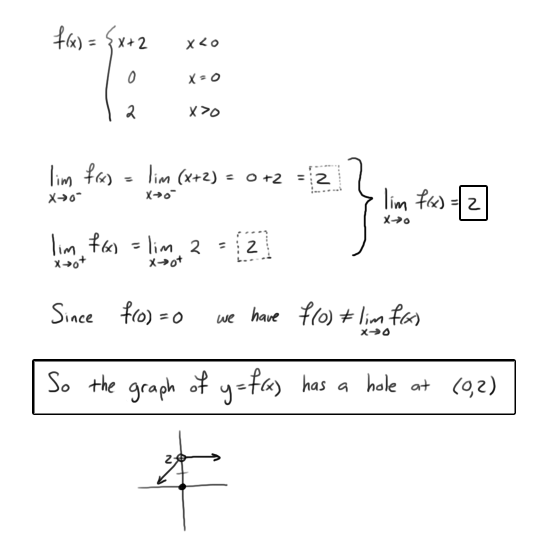 f(x) = { x+2 x<0
0 x=0
2 x>0
lim x→0⁻ f(x) = lim x→0⁻ (x+2) = 0+2 = 2
lim x→0⁺ f(x) = lim x→0⁺ 2 = 2
} lim x→0 f(x) = 2
Since f(0)=0 we have f(0) ≠ lim x→0 f(x)
So the graph of y=f(x) has a hole at (0,2)
2